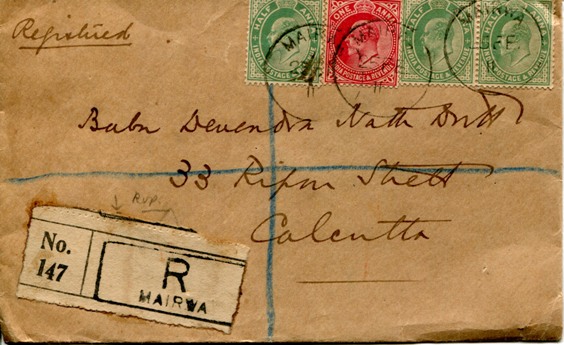 Registered
HALF ANNA
INDIA POSTAGE & REVENUE
ONE ANNA
INDIA POSTAGE & REVENUE
HALF ANNA
INDIA POSTAGE & REVENUE
HALF ANNA
INDIA POSTAGE & REVENUE
MAIRWA
FE
Babu Devendra Nath Dutt
33 Ripon Street
Calcutta
R.V.P.
No.
147
R
MAIRWA